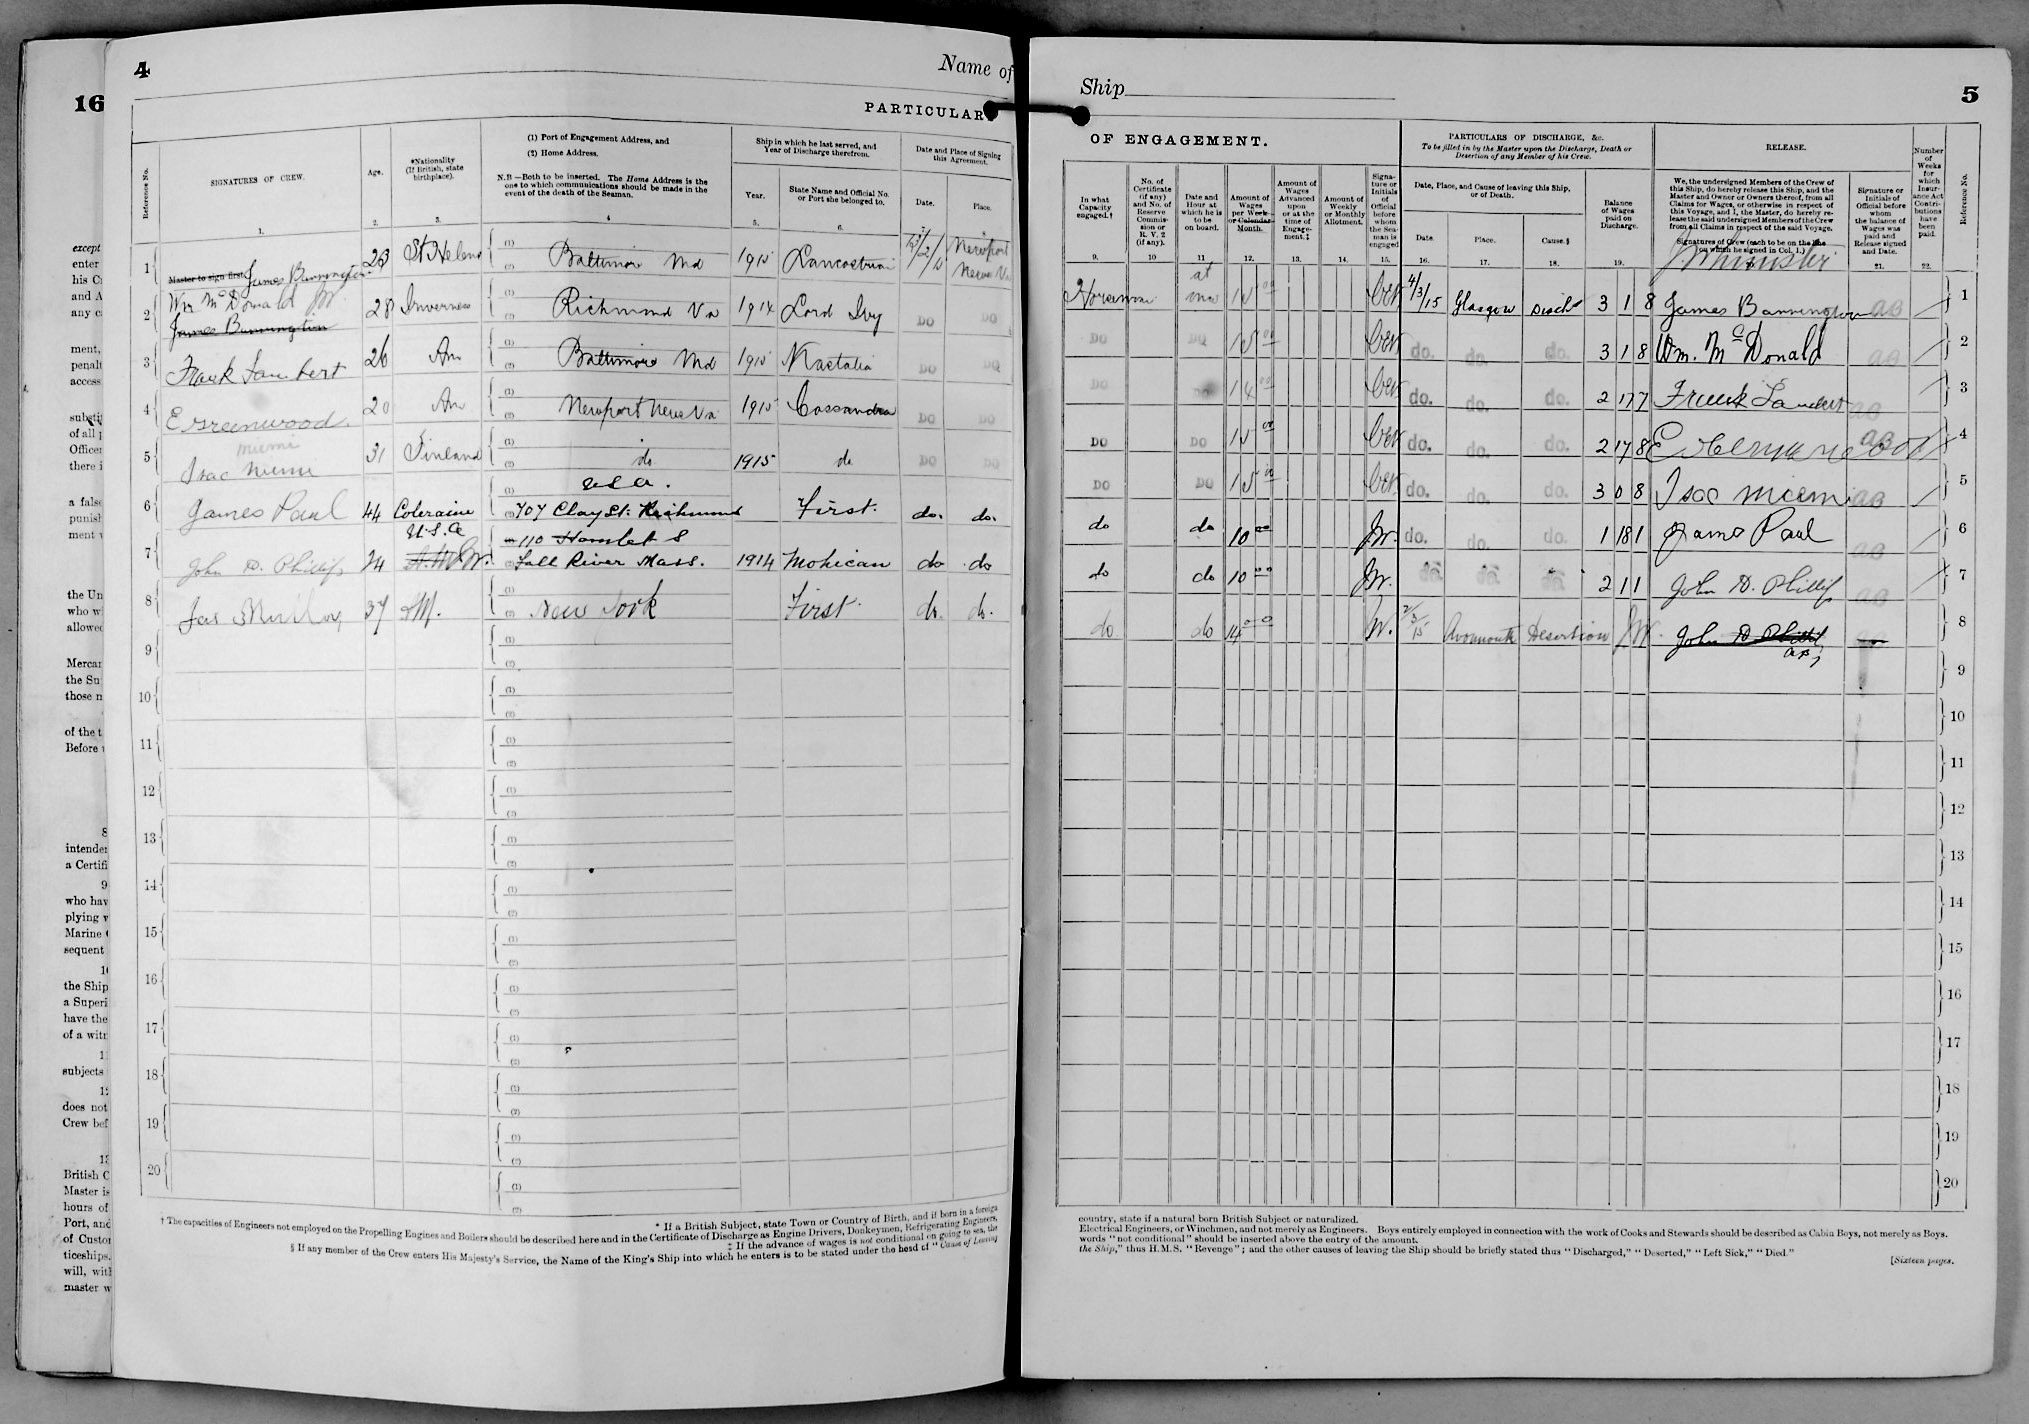 16
except
enter
his C
and A
any c
ment,
penalt
access
substi
of all p
Officer
there i
a false
punish
ment w
the Un
who w
allowed
Mercan
the Su
those n
of the t
Before
8
intende
a Certifi
9
who hav
plying v
Marine
sequent
10
the Ship
a Superi
have the
of a witn
subjects
does not
Crew bef
British C
Master is
hours of
Port, and
of Custo
ticeships.
will, with
master w
4
Name of
PARTICULAR
Reference No.
SIGNATURES OF CREW.
1.
Age.
2.
*Nationality (If British, state birthplace).
3.
(1) Port of Engagement Address, and
(2) Home Address.
N.B.—Both to be inserted. The Home Address is the
one to which communications should be made in the
event of the death of the Seaman.
4
Ship in which he last served, and
Year of Discharge therefrom.
Year.
5.
State Name and Official No.
or Port she belonged to.
6.
Date and Place of Signing
this Agreement.
Date.
Place.
1 Master to sign first James Bannington 23 St Helena (1) (2) Baltimore Md 1915 Lancastrian Newport News Va
2 Wm McDonald James Bannington 28 Inverness (1) (2) Richmond Va 1914 Lord Ivy DO DO
3 Frank Lambert 26 Am (1) (2) Baltimore Md 1915 DO DO
4 E Greenwood 20 Am (1) (2) Newport News Va 1915 Cassandra DO DO
5 Isac Niemi 31 Finland (1) (2) do 1915 do DO DO
6 James Paul 44 Coleraine (1) U S A. (2) 707 Clay St. Richmond First. do. do.
7 John D. Phillip 24 U.S.A 110 Hamlet S Fall River Mass. 1914 Mohican do do
8 37 (1) (2) New York First. do. do.
9 (1) (2)
10 (1) (2)
11 (1) (2)
12 (1) (2)
13 (1) (2)
14 (1) (2)
15 (1) (2)
16 (1) (2)
17 (1) (2)
18 (1) (2)
19 (1) (2)
20 (1) (2)
* If a British Subject, state Town or Country of Birth, and if born in a foreign
† The capacities of Engineers not employed on the Propelling Engines and Boilers should be described here and in the Certificate of Discharge as Engine Drivers, Donkeymen, Refrigerating Engineers,
‡ If the advance of wages is not conditional on going to sea, the
§ If any member of the Crew enters His Majesty's Service, the Name of the King's Ship into which he enters is to be stated under the head of "Cause of Leaving
Ship
5
OF ENGAGEMENT.
In what
Capacity
engaged.†
9.
No. of
Certificate
(if any)
and No. of
Reserve
Commis-
sion or
R. V. 2
(if any).
10
Date and
Hour at
which he is
to be
on board.
11
Amount of
Wages
per Week
or Calendar
Month.
12.
Amount of
Wages
Advanced
upon
or at the
time of
Engage-
ment.‡
13.
Amount of
Weekly
or Monthly
Allotment.
14.
Signa-
ture or
Initials
of
Official
before
whom
the Sea-
man is
engaged
15.
PARTICULARS OF DISCHARGE, &c.
To be filled in by the Master upon the Discharge, Death or
Desertion of any Member of his Crew.
Date, Place, and Cause of leaving this Ship,
or of Death.
Date.
16.
Place.
17.
Cause.§
18.
Balance
of Wages
paid on
Discharge.
19.
RELEASE.
We, the undersigned Members of the Crew of
this Ship, do hereby release this Ship, and the
Master and Owner or Owners thereof, from all
Claims for Wages, or otherwise in respect of
this Voyage, and I, the Master, do hereby re-
lease the said undersigned Members of the Crew
from all Claims in respect of the said Voyage.
Signatures of Crew (each to be on the line
on which he signed in Col. 1.)
Signature or
Initials of
Official before
whom
the balance of
Wages was
paid and
Release signed
and Date.
21.
Number
of
Weeks
for
which
Insur-
ance Act
Contri-
butions
have
been
paid.
22.
Reference No.
Horseman at once 15 00 4/3/15 Glasgow Disch 3 1 8 James Bannington AB 1
DO DO 15 00 do. do. do. 3 1 8 Wm. McDonald AB 2
DO DO 14 00 do. do. do. 2 17 7 Frank Lambert AB 3
DO DO 15 00 do. do. do. 2 17 8 AB 4
DO DO 15 00 do. do. do. 3 0 8 AB 5
do do 10 00 JW. do. do. do. 1 18 1 James Paul AB 6
do do 10 00 JW. do. do. do. 2 1 1 John D. Phillip AB 7
do do 14 00 JW. 2/3/15 Avonmouth Desertion JW. John D Phillip AB 8
9
10
11
12
13
14
15
16
17
18
19
20
country, state if a natural born British Subject or naturalized.
Electrical Engineers, or Winchmen, and not merely as Engineers. Boys entirely employed in connection with the work of Cooks and Stewards should be described as Cabin Boys, not merely as Boys.
words "not conditional" should be inserted above the entry of the amount.
the Ship," thus H.M.S. "Revenge"; and the other causes of leaving the Ship should be briefly stated thus "Discharged," "Deserted," "Left Sick," "Died."
[Sixteen pages.